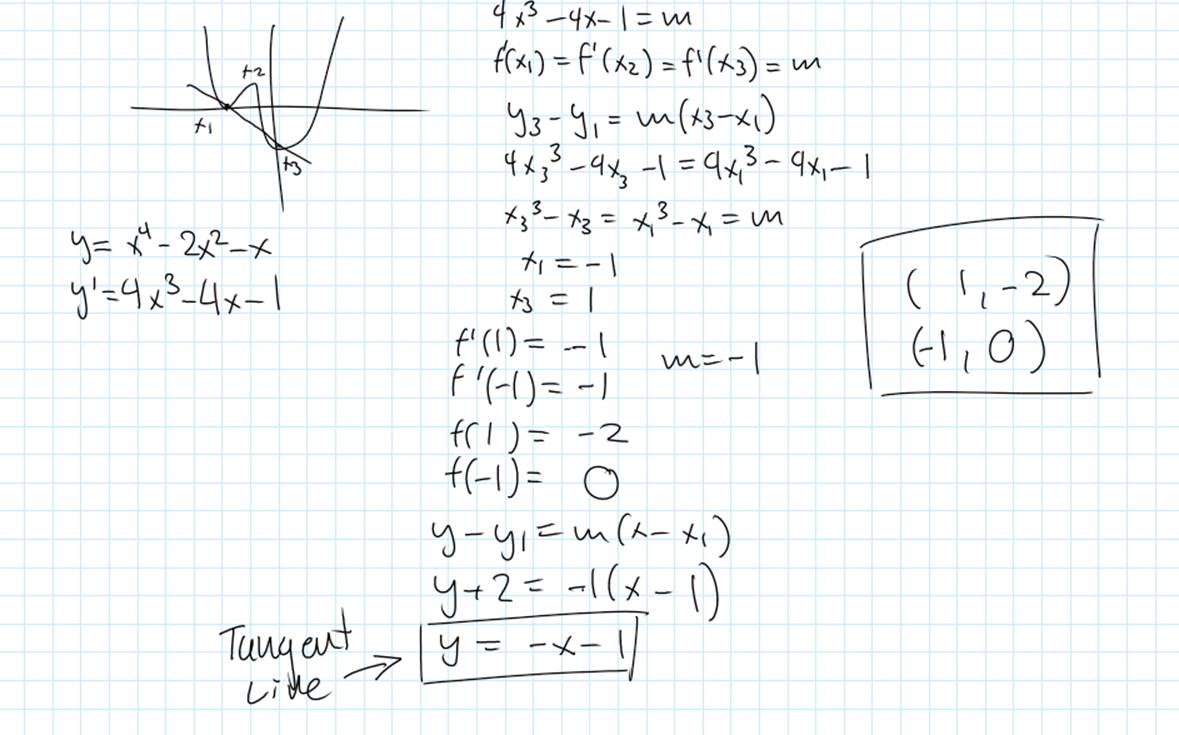 x1
x2
x3
y = x⁴ - 2x² - x
y' = 4x³ - 4x - 1
4x³ - 4x - 1 = m
f'(x₁) = f'(x₂) = f'(x3) = m
y3 - y₁ = m(x3 - x₁)
4x₃³ - 4x₃ - 1 = 4x₁³ - 4x₁ - 1
x₃³ - x₃ = x₁³ - x₁ = m
x₁ = -1
x₃ = 1
f'(1) = -1
f'(-1) = -1
m = -1
f(1) = -2
f(-1) = 0
y - y₁ = m(x - x₁)
y + 2 = -1(x - 1)
y = -x - 1
Tangent
Line
(1, -2)
(-1, 0)